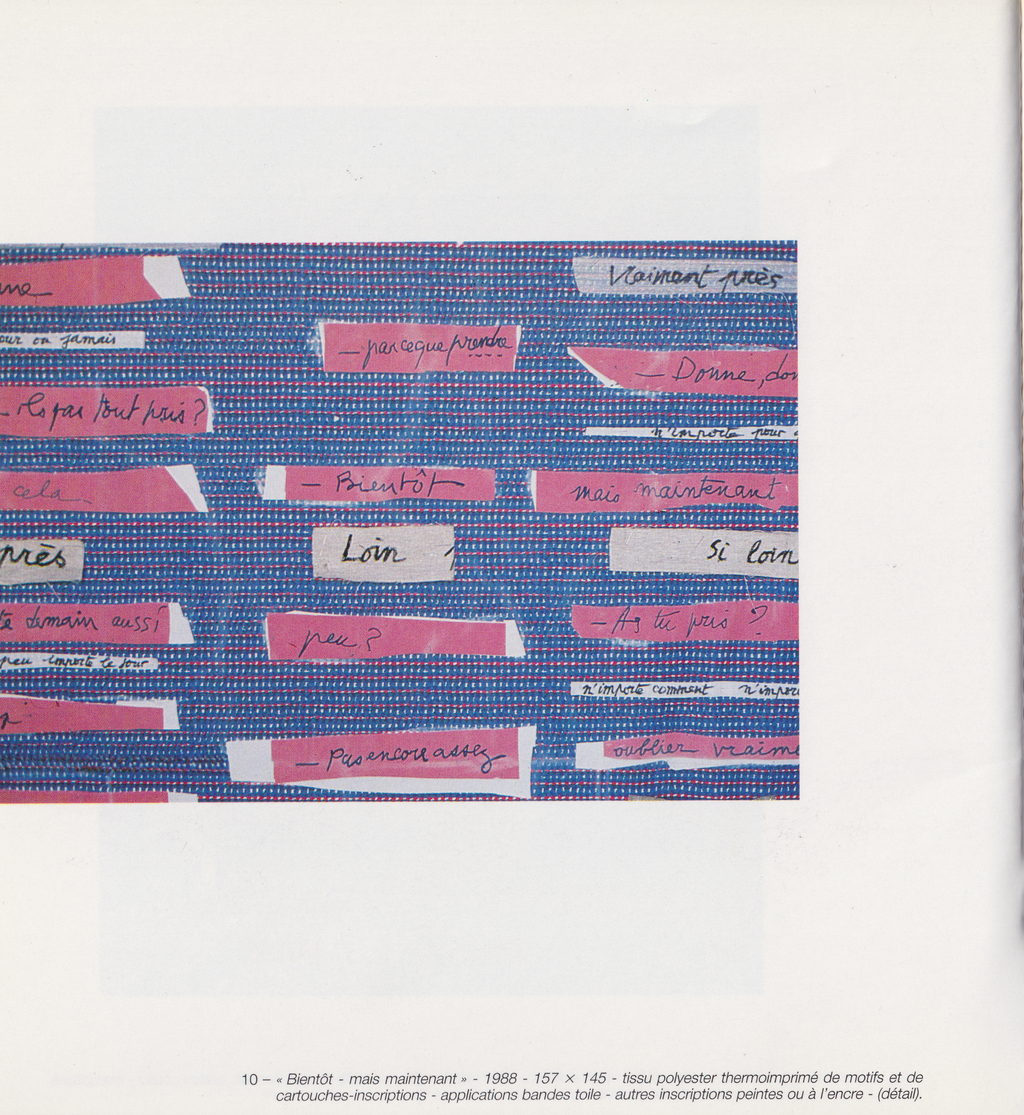 Vraiment près
our ou jamais
– parceque prendre
– Donne, don
– ils pas tout pris ?
n'importe pour
cela
– Bientôt –
mais maintenant
près
Loin
Si loin
te demain aussi
peu ?
– As tu pris ?
peu importe le jour
n'importe comment n'impor
– Pas encore assez
oublier vraime
10 – « Bientôt - mais maintenant » - 1988 - 157 × 145 - tissu polyester thermoimprimé de motifs et de
cartouches-inscriptions - applications bandes toile - autres inscriptions peintes ou à l'encre - (détail).